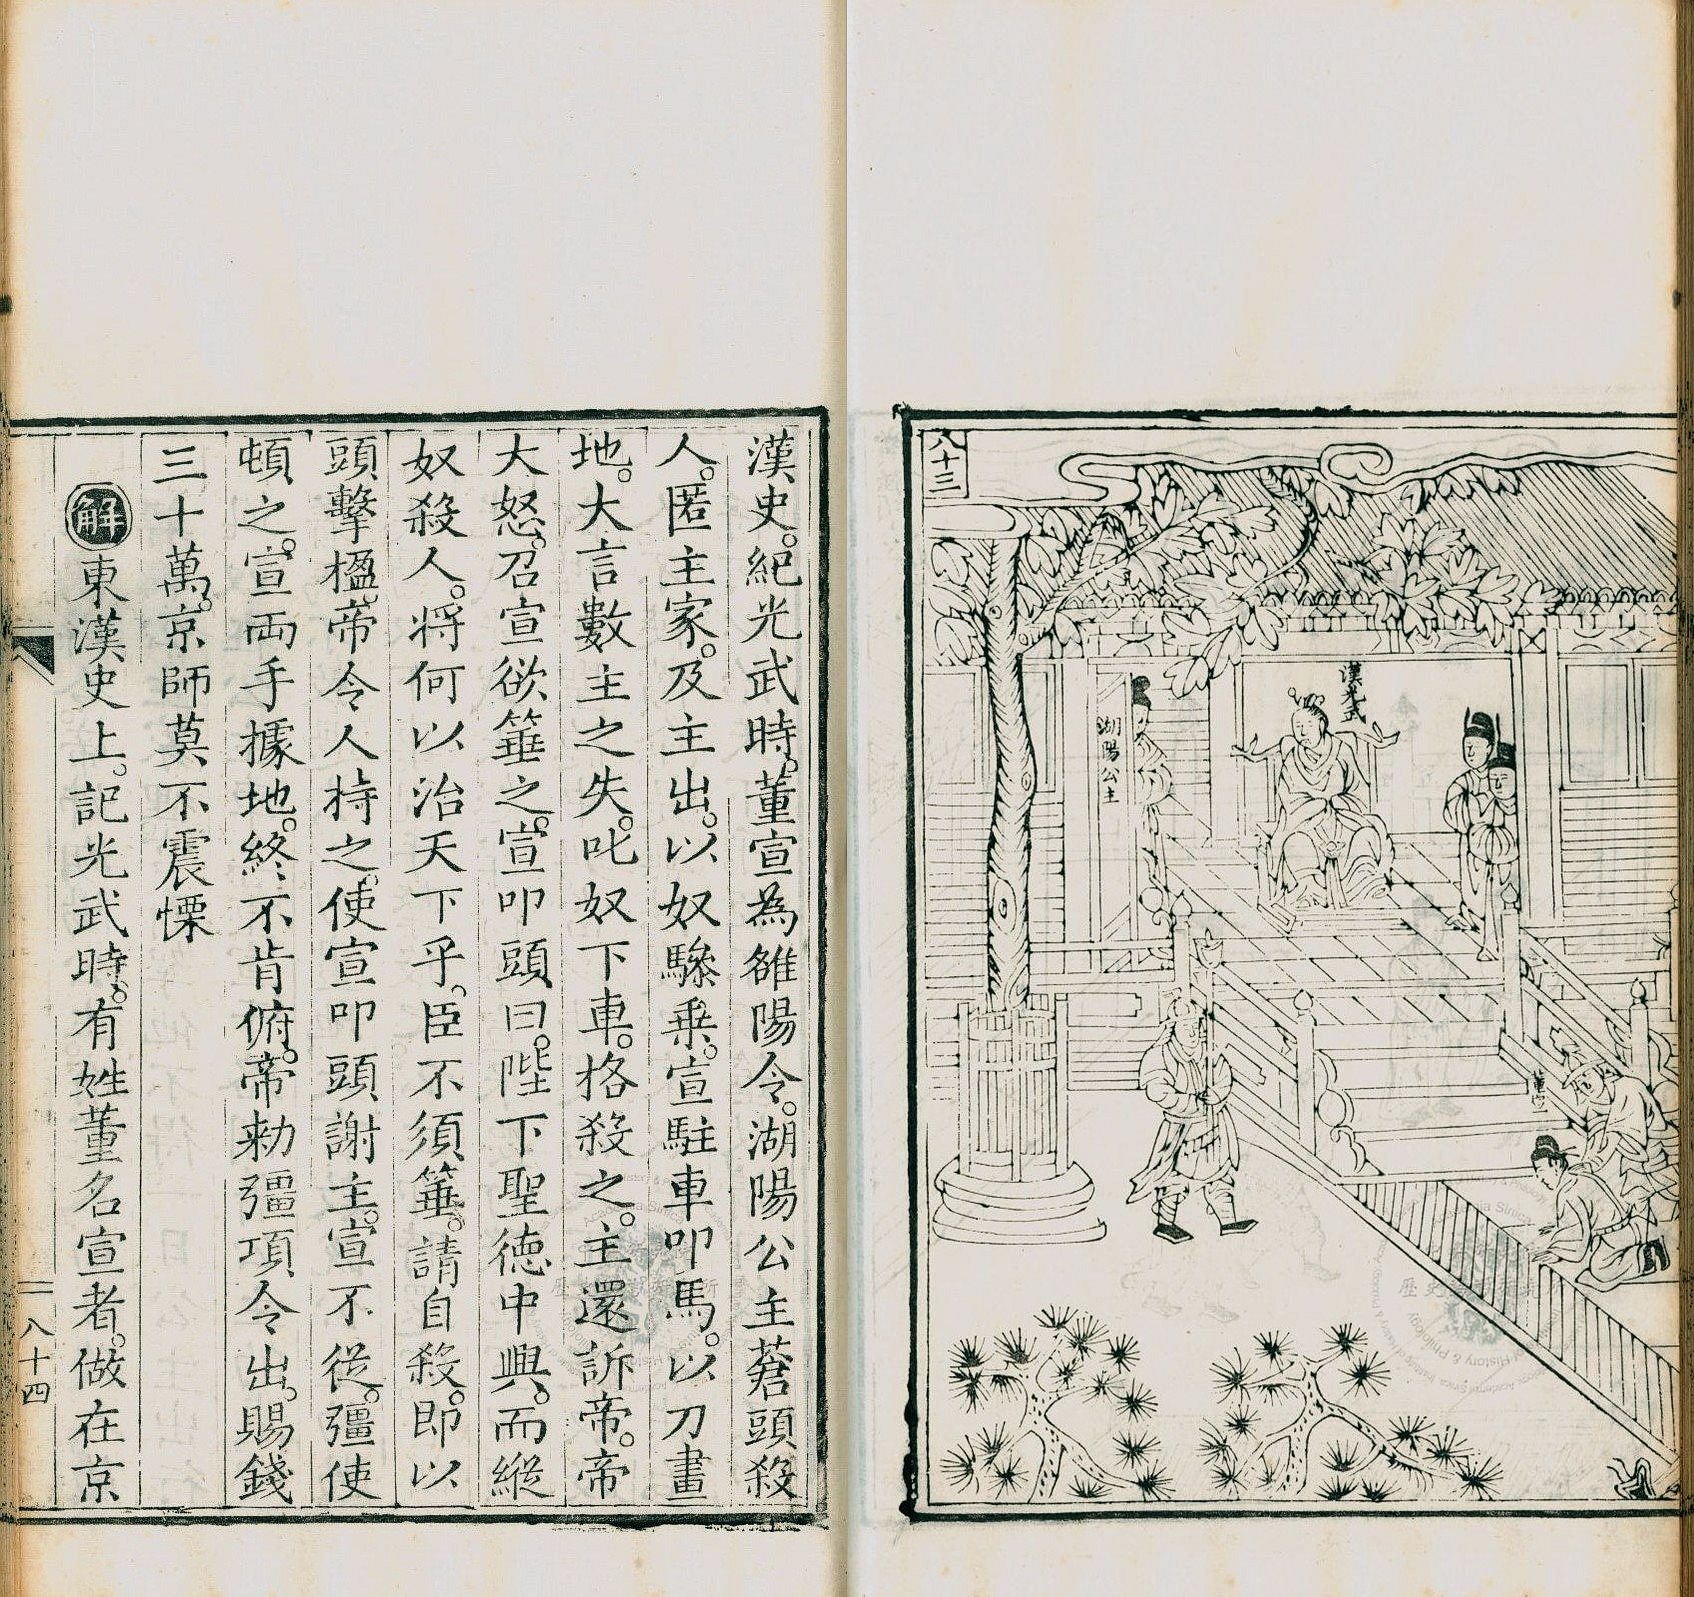 八十三
漢光武
湖陽公主
董宣
漢史。紀光武時。董宣為雒陽令。湖陽公主蒼頭殺
人。匿主家。及主出。以奴驂乗。宣駐車叩馬。以刀畫
地。大言數主之失。叱奴下車。格殺之。主還訴帝。帝
大怒。召宣欲箠之。宣叩頭曰。陛下聖德中興。而縱
奴殺人。将何以治天下乎。臣不須箠。請自殺。即以
頭擊楹。帝令人持之。使宣叩頭謝主。宣不從。彊使
頓之。宣両手據地。終不肯俯。帝勑彊項令出。賜錢
三十萬。京師莫不震慄
解 東漢史上。記光武時。有姓董名宣者。做在京
八十四